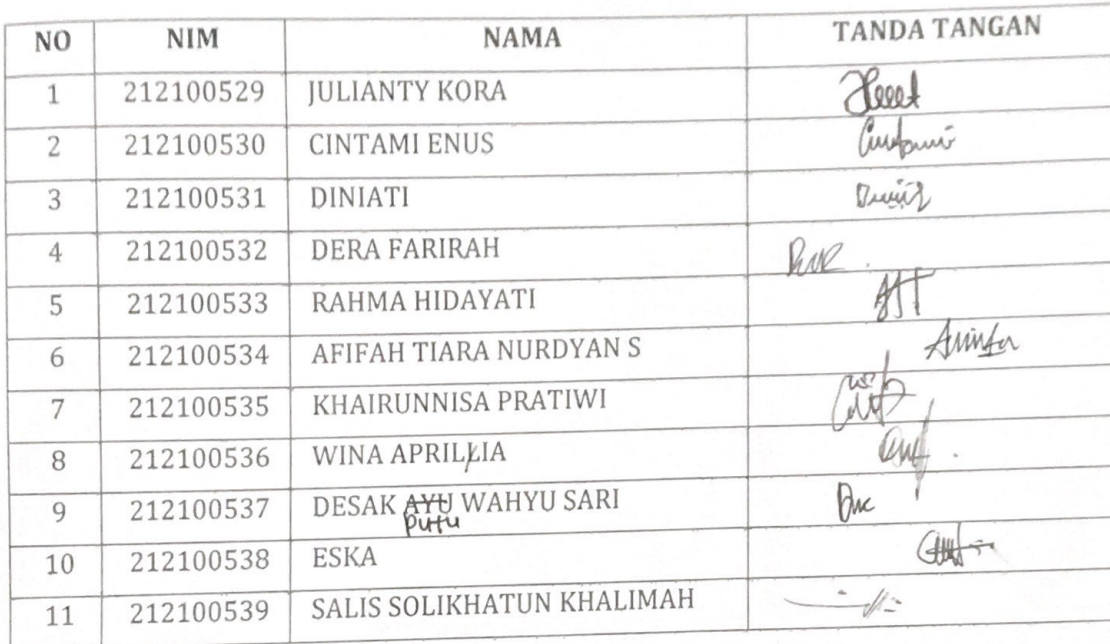 NO NIM NAMA TANDA TANGAN
1 212100529 JULIANTY KORA
2 212100530 CINTAMI ENUS Cintami
3 212100531 DINIATI
4 212100532 DERA FARIRAH
5 212100533 RAHMA HIDAYATI
6 212100534 AFIFAH TIARA NURDYAN S
7 212100535 KHAIRUNNISA PRATIWI
8 212100536 WINA APRILLIA
9 212100537 DESAK AYU WAHYU SARI
Putu
10 212100538 ESKA
11 212100539 SALIS SOLIKHATUN KHALIMAH